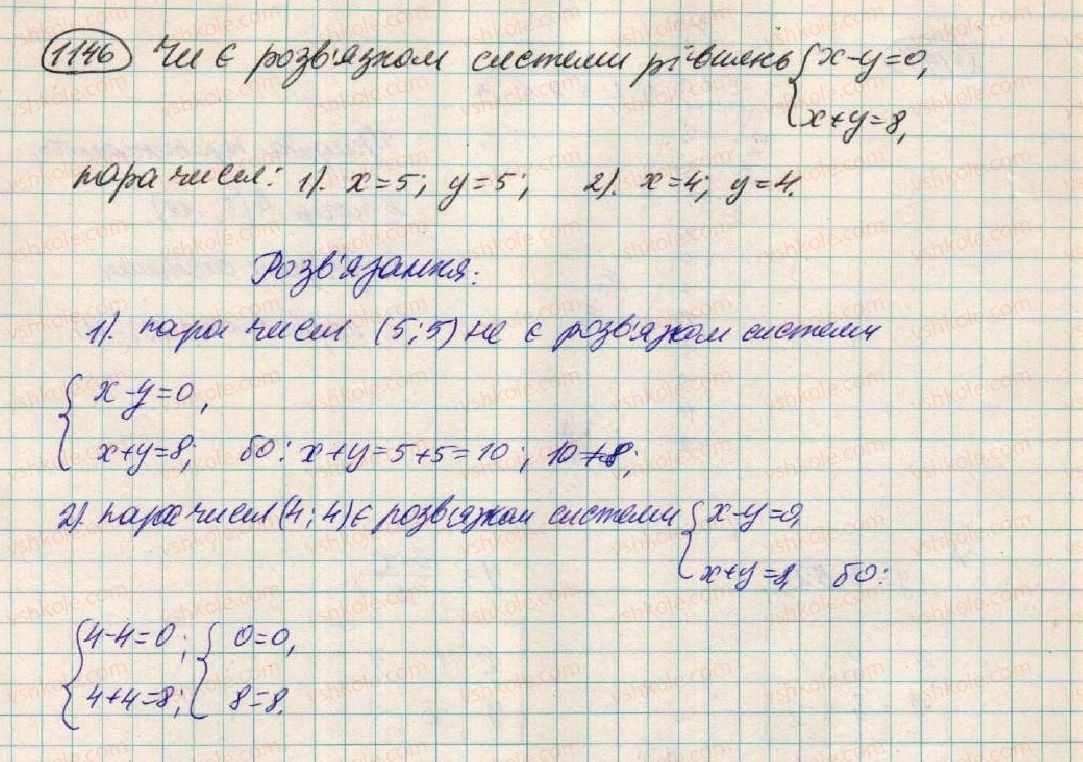 1146 Чи є розв'язком системи рівнянь { x-y=0,
x+y=8,
пара чисел: 1). x=5; y=5; 2). x=4; y=4.
Розв'язання:
1). пара чисел (5;5) не є розв'язком системи
{ x-y=0,
x+y=8; бо: x+y=5+5=10; 10≠8;
2). пара чисел (4;4) є розв'язком системи { x-y=0,
x+y=8, бо:
{ 4-4=0; { 0=0,
4+4=8; 8=8.